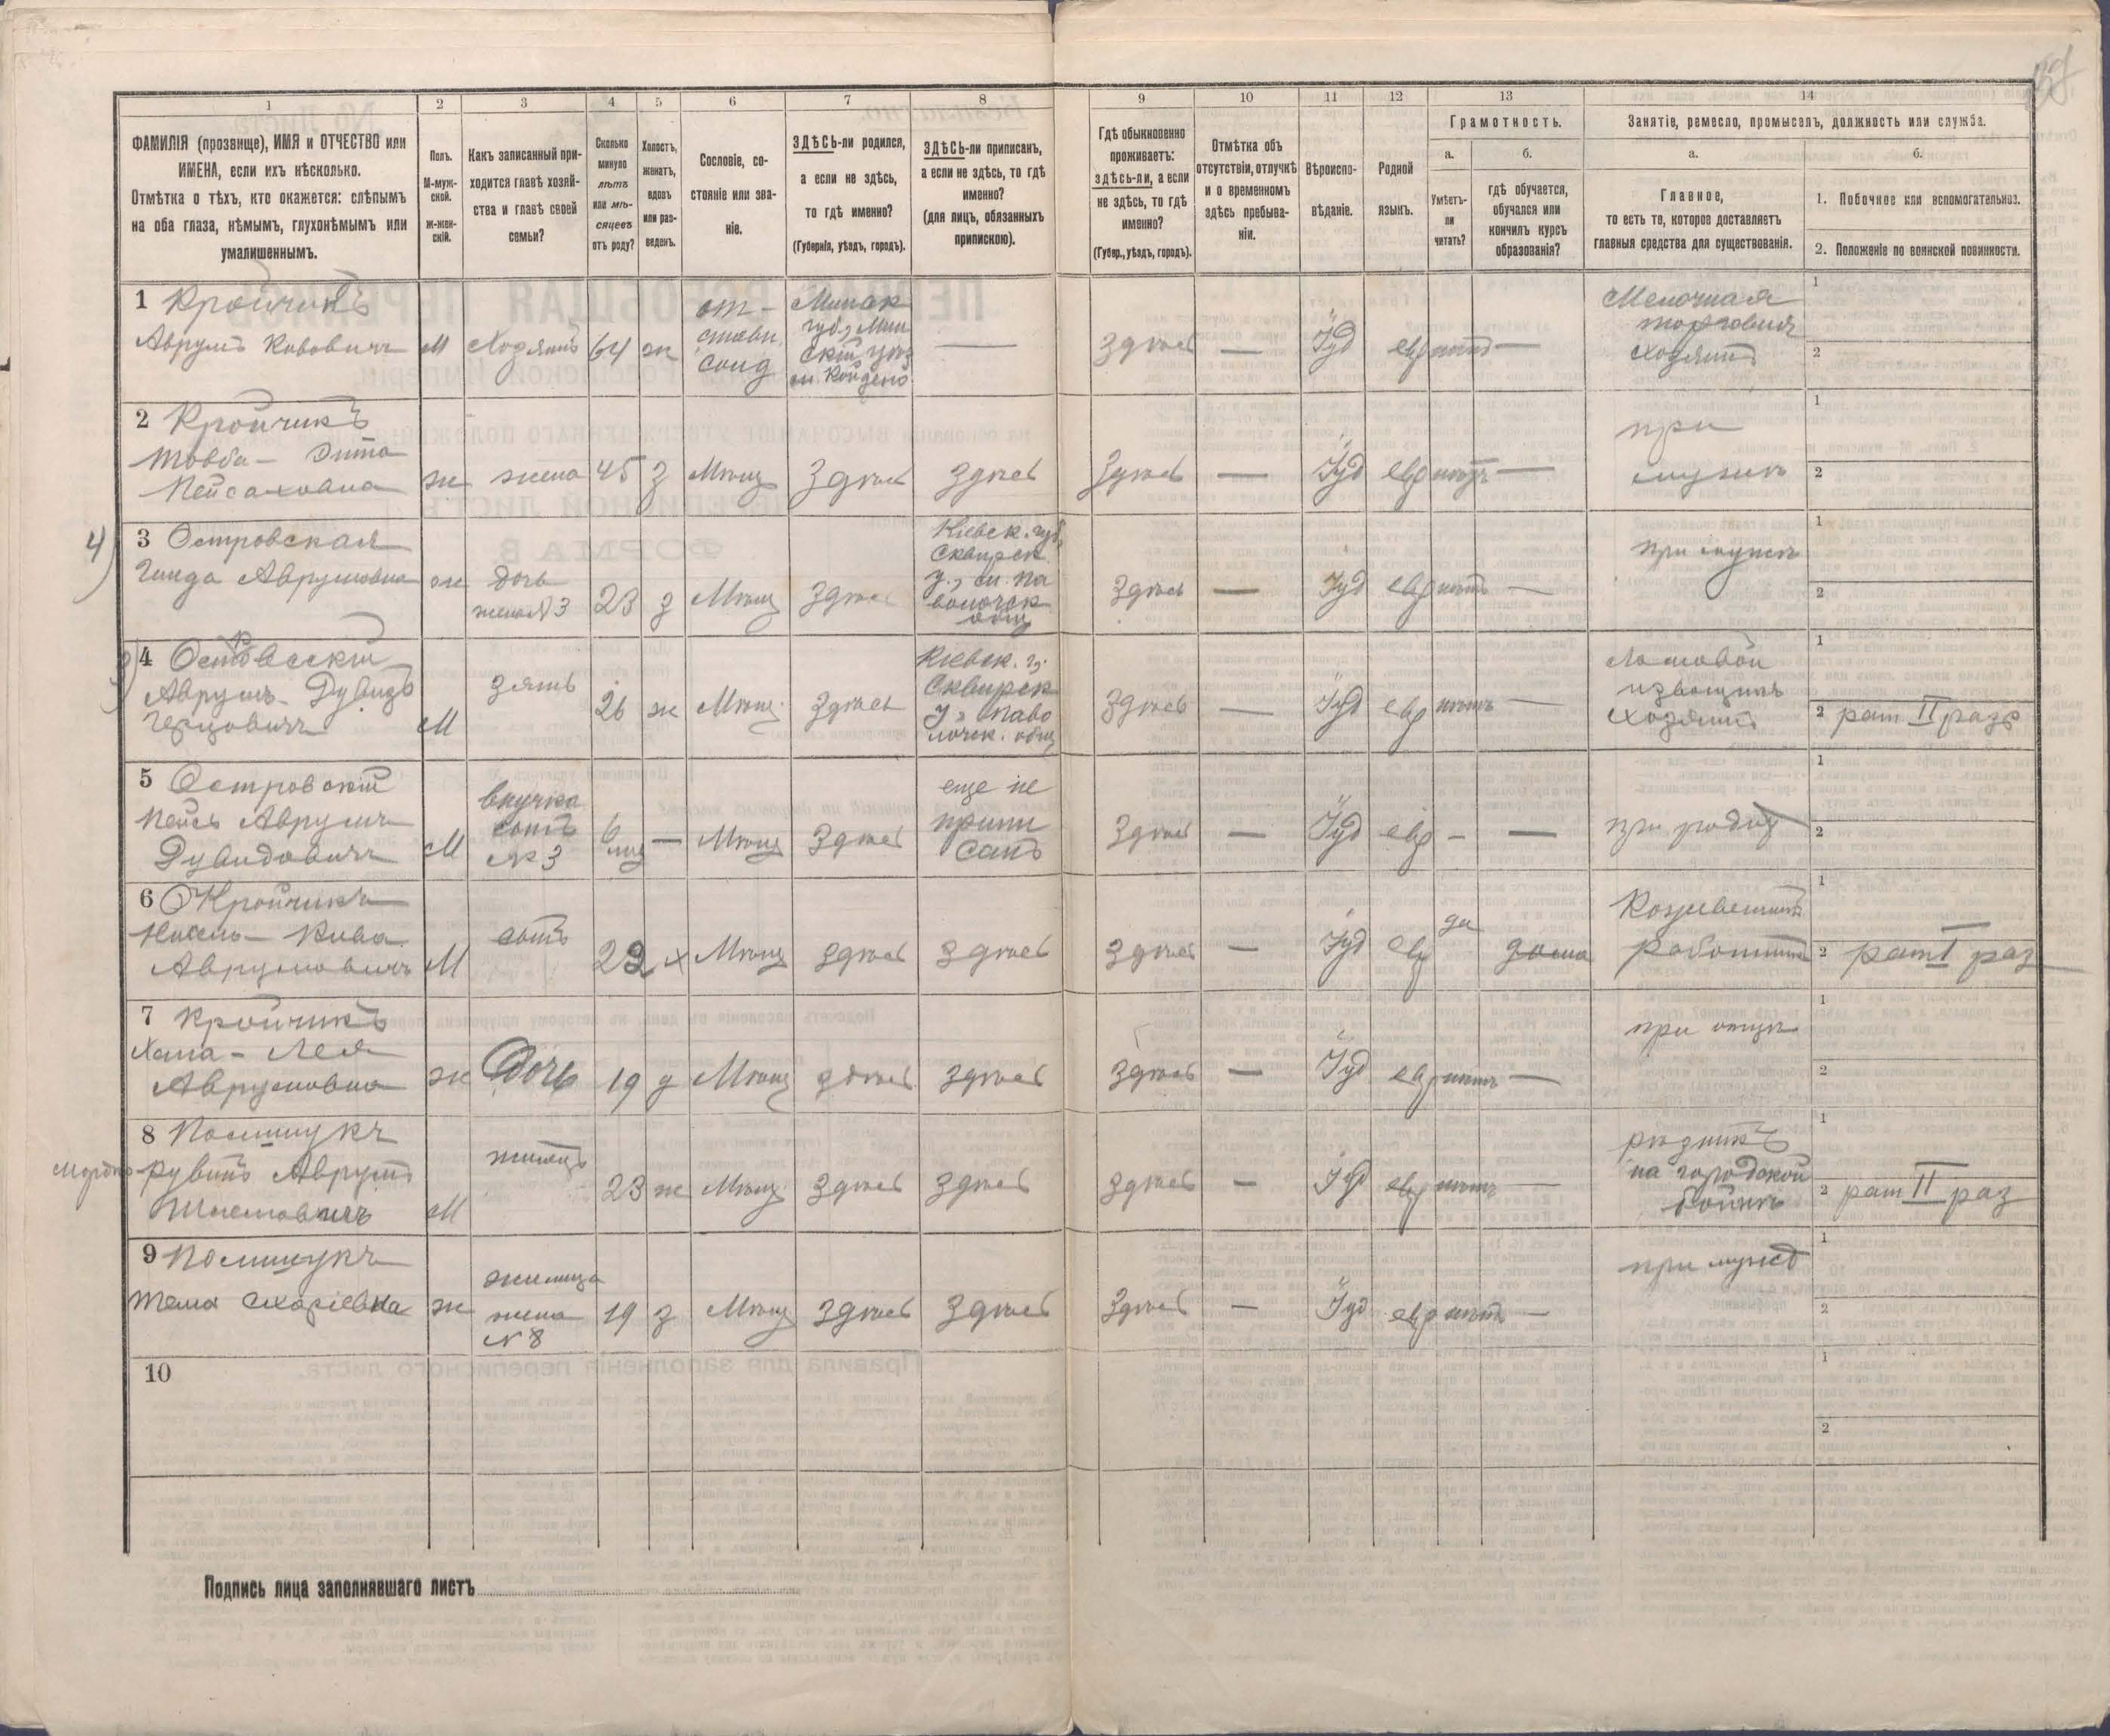 1
2
3
4
5
6
7
8
9
10
11
12
13
14
ФАМИЛІЯ (прозвище), ИМЯ и ОТЧЕСТВО или
ИМЕНА, если ихъ нѣсколько.
Отмѣтка о тѣхъ, кто окажется: слѣпымъ
на оба глаза, нѣмымъ, глухонѣмымъ или
умалишеннымъ.
Полъ.
М-муж-
ской.
ж-жен-
скій.
Какъ записанный при-
ходится главѣ хозяй-
ства и главѣ своей
семьи?
Сколько
минуло
лѣтъ
или мѣ-
сяцевъ
отъ роду?
Холостъ,
женатъ,
вдовъ
или раз-
веденъ.
Сословіе, со-
стояніе или зва-
ніе.
ЗДѢСЬ-ли родился,
а если не здѣсь,
то гдѣ именно?
(Губернія, уѣздъ, городъ).
ЗДѢСЬ-ли приписанъ,
а если не здѣсь, то гдѣ
именно?
(для лицъ, обязанныхъ
припискою).
Гдѣ обыкновенно
проживаетъ:
здѣсь-ли, а если
не здѣсь, то гдѣ
именно?
(Губер., уѣздъ, городъ).
Отмѣтка объ
отсутствіи, отлучкѣ
и о временномъ
здѣсь пребыва-
ніи.
Вѣроиспо-
вѣданіе.
Родной
языкъ.
Грамотность.
а.
Умѣетъ-
ли
читать?
б.
гдѣ обучается,
обучался или
кончилъ курсъ
образованія?
Занятіе, ремесло, промыселъ, должность или служба.
а.
Главное,
то есть то, которое доставляетъ
главныя средства для существованія.
б.
1. Побочное или вспомогательное.
2. Положеніе по воинской повинности.
1 Кройчикъ
Аврумъ Кивовичъ
М
Хозяинъ
64
ж
от-
ставн
солд
Минск
губ., Мин
скій уѣз
м. Койденв
—
Здѣсь
—
Іуд
евр
нѣтъ
—
Мелочная
торговля
хозяинъ
1
2
2 Кройчикъ
Товба - Энта
Пейсаховна
ж
жена
45
з
Мѣщ
Здѣсь
Здѣсь
Здѣсь
—
Іуд
евр
нѣтъ
—
при
мужѣ
1
2
4)
3 Островская
Гинда Аврумовна
ж
дочь
жена №3
23
з
Мѣщ
Здѣсь
Кіевск. губ.
Сквирск
у., м. Па
волочск
общ
Здѣсь
—
Іуд
евр
нѣтъ
—
при мужѣ
1
2
3)
4 Островскій
Аврумъ-Дувидъ
Герцовичъ
М
зять
26
ж
Мѣщ.
Здѣсь
Кіевск. г.
Сквирск
у. Паво
лочск. общ
Здѣсь
—
Іуд
евр
нѣтъ
—
Ломовой
извощикъ
хозяинъ
1
2 рат II разр
5 Островскій
Пейсъ Аврумъ
Дувидовичъ
М
внучка
сынъ
№ 3
6
мѣс
—
Мѣщ
Здѣсь
еще не
припи
санъ
Здѣсь
—
Іуд
евр
-
—
при родит
1
2
6 Кройчикъ
Нисель - Кива
Аврумовичъ
М
сынъ
22
х
Мѣщ
здѣсь
здѣсь
здѣсь
—
Іуд
евр
да
дома
Кожевенный
работникъ
1
2 рат I раз
7 Кройчикъ
Хана - Лея
Аврумовна
ж
Дочь
19
д
Мѣщ
здѣсь
здѣсь
здѣсь
—
Іуд
евр
нѣтъ
—
при отцѣ
1
2
8 Полищукъ
Мордко - Рувинъ Аврумъ
Шлемовичъ
М
жилецъ
23
ж
Мѣщ.
Здѣсь
Здѣсь
здѣсь
—
Іуд
евр
нѣтъ
—
рѣзникъ
на городской
бойнѣ
1
2 рат II раз
9 Полищукъ
Тема Схаріевна
ж
жилица
жена
№ 8
19
з
Мѣщ
здѣсь
Здѣсь
Здѣсь
—
Іуд
евр
нѣтъ
—
при мужѣ
1
2
10
1
2
Подпись лица заполнявшаго листъ